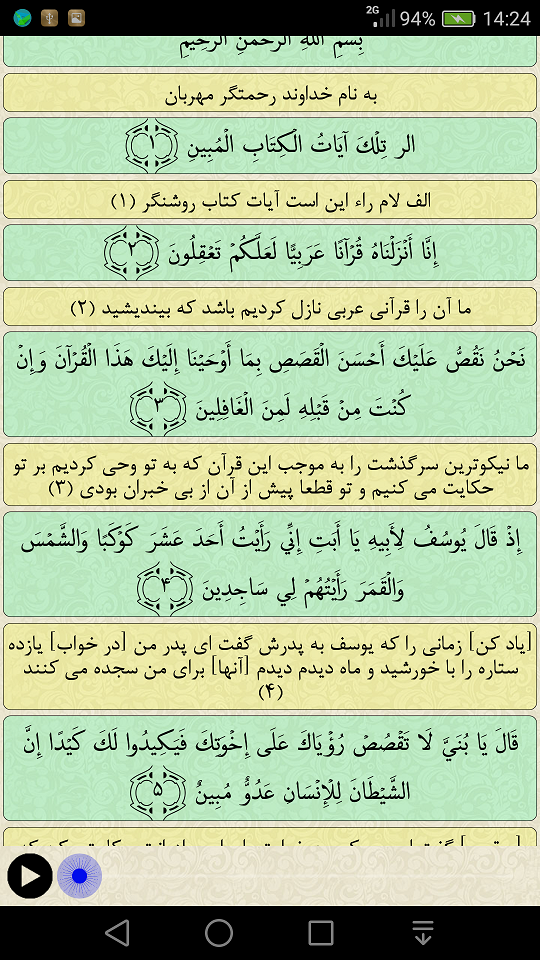 2G 94% 14:24
بِسْمِ اللَّهِ الرَّحْمَنِ الرَّحِيمِ
به نام خداوند رحمتگر مهربان
الر تِلْكَ آيَاتُ الْكِتَابِ الْمُبِينِ ﴿۱﴾
الف لام راء این است آیات کتاب روشنگر (۱)
إِنَّا أَنْزَلْنَاهُ قُرْآنًا عَرَبِيًّا لَعَلَّكُمْ تَعْقِلُونَ ﴿۲﴾
ما آن را قرآنی عربی نازل کردیم باشد که بیندیشید (۲)
نَحْنُ نَقُصُّ عَلَيْكَ أَحْسَنَ الْقَصَصِ بِمَا أَوْحَيْنَا إِلَيْكَ هَذَا الْقُرْآنَ وَإِنْ
كُنْتَ مِنْ قَبْلِهِ لَمِنَ الْغَافِلِينَ ﴿۳﴾
ما نیکوترین سرگذشت را به موجب این قرآن که به تو وحی کردیم بر تو
حکایت می کنیم و تو قطعا پیش از آن از بی خبران بودی (۳)
إِذْ قَالَ يُوسُفُ لِأَبِيهِ يَا أَبَتِ إِنِّي رَأَيْتُ أَحَدَ عَشَرَ كَوْكَبًا وَالشَّمْسَ
وَالْقَمَرَ رَأَيْتُهُمْ لِي سَاجِدِينَ ﴿۴﴾
[یاد کن] زمانی را که یوسف به پدرش گفت ای پدر من [در خواب] یازده
ستاره را با خورشید و ماه دیدم دیدم [آنها] برای من سجده می کنند
(۴)
قَالَ يَا بُنَيَّ لَا تَقْصُصْ رُؤْيَاكَ عَلَى إِخْوَتِكَ فَيَكِيدُوا لَكَ كَيْدًا إِنَّ
الشَّيْطَانَ لِلْإِنْسَانِ عَدُوٌّ مُبِينٌ ﴿۵﴾